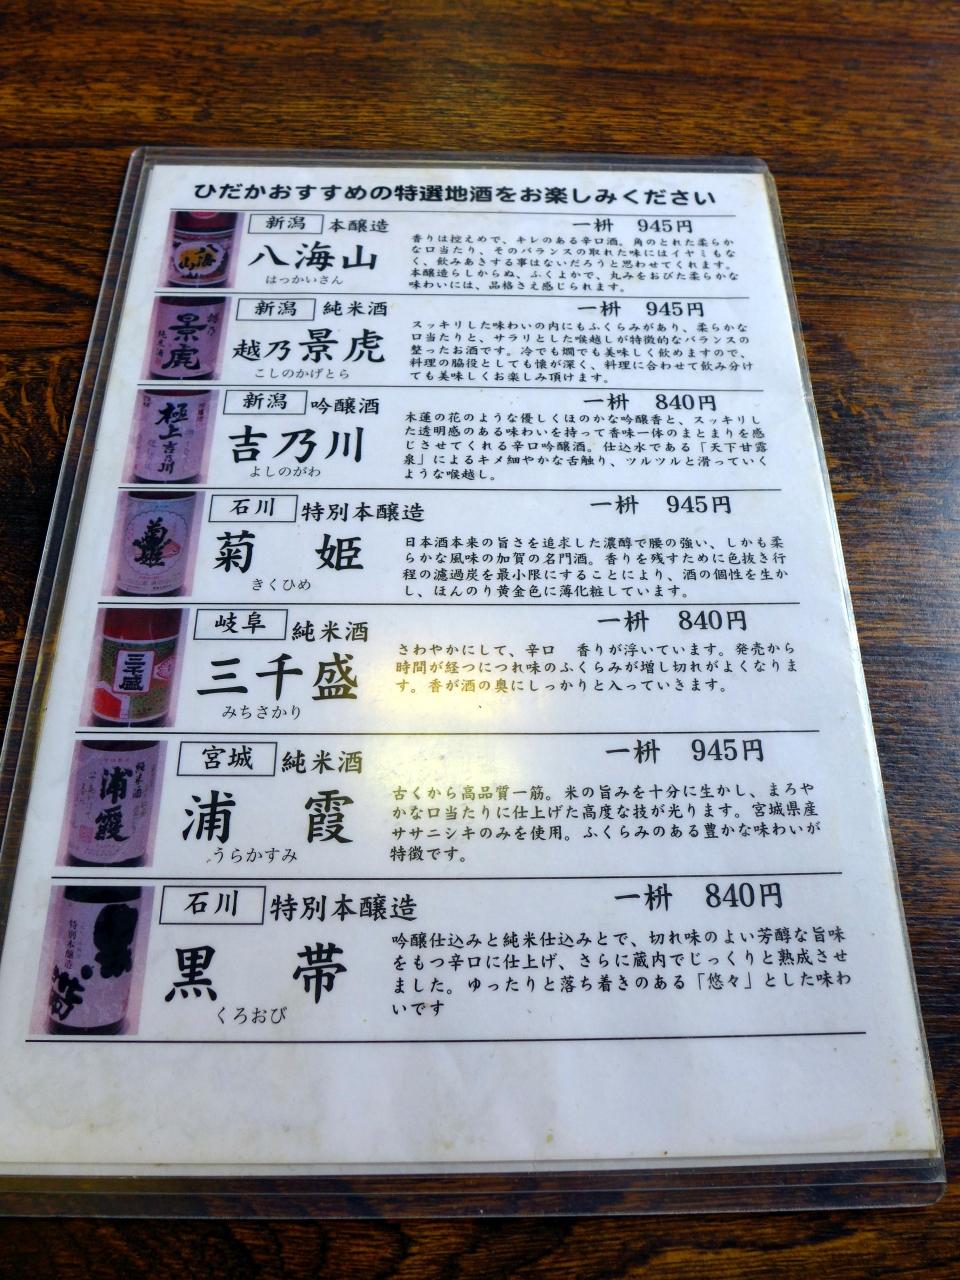 ひだかおすすめの特選地酒をお楽しみください
新潟 本醸造 一枡 945円
八海山
はっかいさん
香りは控えめで、キレのある辛口酒。角のとれた柔らか
な口当たり、そのバランスの取れた味にはイヤミもな
く、飲みあきする事はないだろうと思わせてくれます。
本醸造らしからぬ、ふくよかで、丸みをおびた柔らかな
味わいには、品格さえ感じられます。
新潟 純米酒 一枡 945円
越乃景虎
こしのかげとら
スッキリした味わいの内にもふくらみがあり、柔らかな
口当たりと、サラリとした喉越しが特徴的なバランスの
整ったお酒です。冷でも燗でも美味しく飲めますので、
料理の脇役としても懐が深く、料理に合わせて飲み分け
ても美味しくお楽しみ頂けます。
新潟 吟醸酒 一枡 840円
吉乃川
よしのがわ
木蓮の花のような優しくほのかな吟醸香と、スッキリし
た透明感のある味わいを持って香味一体のまとまりを感
じさせてくれる辛口吟醸酒。仕込水である「天下甘露
泉」によるキメ細やかな舌触り、ツルツルと滑っていく
ような喉越し。
石川 特別本醸造 一枡 945円
菊 姫
きくひめ
日本酒本来の旨さを追求した濃醇で腰の強い、しかも柔
らかな風味の加賀の名門酒。香りを残すために色抜き行
程の濾過炭を最小限にすることにより、酒の個性を生か
し、ほんのり黄金色に薄化粧しています。
岐阜 純米酒 一枡 840円
三千盛
みちさかり
さわやかにして、辛口 香りが浮いています。発売から
時間が経つにつれ味のふくらみが増し切れがよくなりま
す。香が酒の奥にしっかりと入っていきます。
宮城 純米酒 一枡 945円
浦 霞
うらかすみ
古くから高品質一筋。米の旨みを十分に生かし、まろや
かな口当たりに仕上げた高度な技が光ります。宮城県産
ササニシキのみを使用。ふくらみのある豊かな味わいが
特徴です。
石川 特別本醸造 一枡 840円
黒 帯
くろおび
吟醸仕込みと純米仕込みとで、切れ味のよい芳醇な旨味
をもつ辛口に仕上げ、さらに蔵内でじっくりと熟成させ
ました。ゆったりと落ち着きのある「悠々」とした味わ
いです
八海山
越乃
景虎
純米酒
極上吉乃川
菊姫
三千盛
純米酒
浦霞
特別本醸造
黒帯